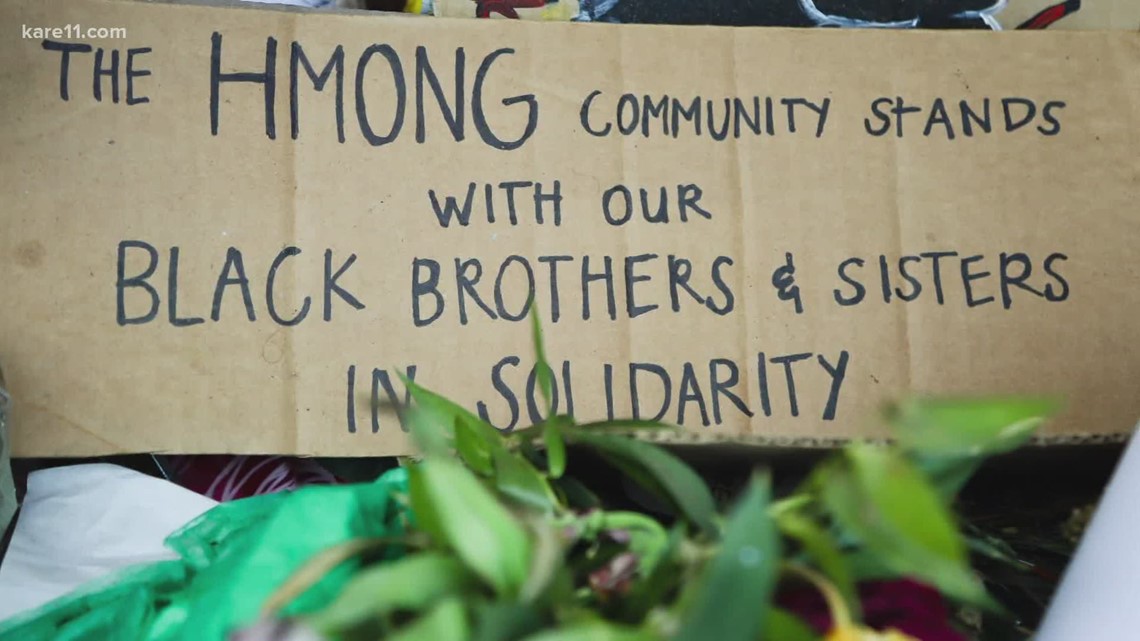 kare11.com
THE HMONG COMMUNITY STANDS
WITH OUR
BLACK BROTHERS & SISTERS
IN SOLIDARITY